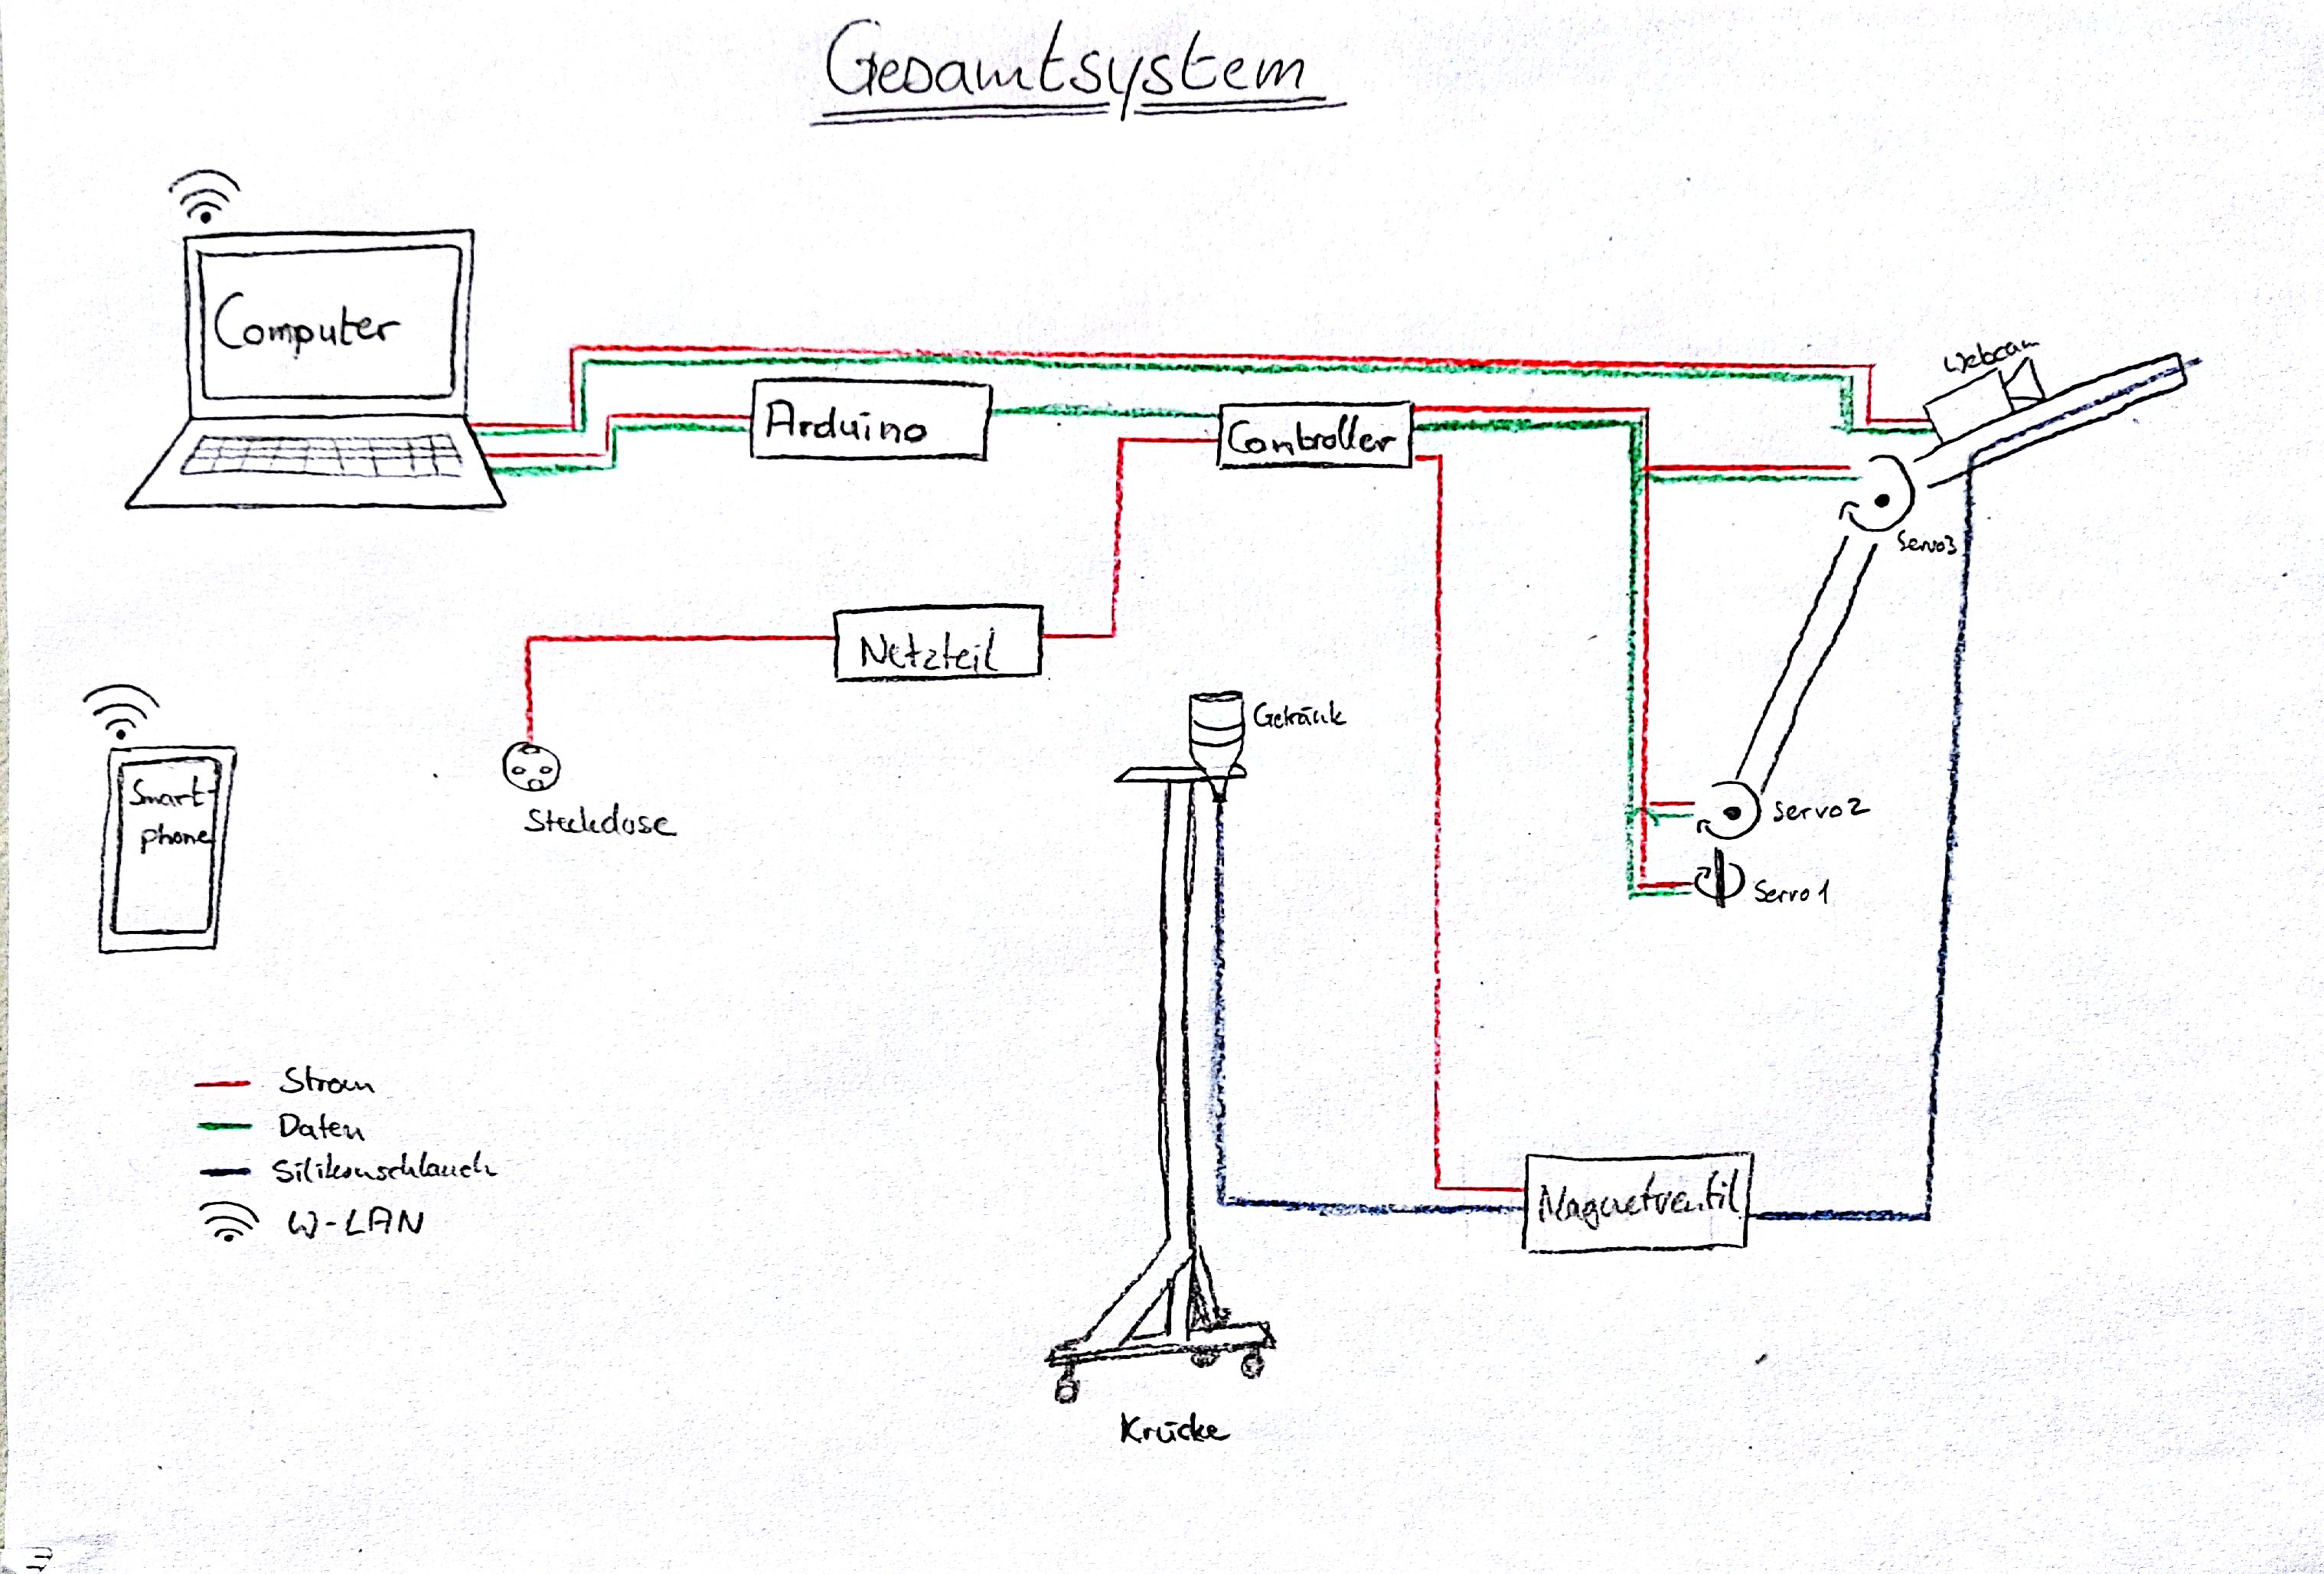 Gesamtsystem
Computer
Webcam
Arduino
Controller
Servo3
Netzteil
Getränk
Smart-
phone
Steckdose
Servo2
Servo1
Strom
Daten
Silikonschlauch
W-LAN
Magnetventil
Krücke